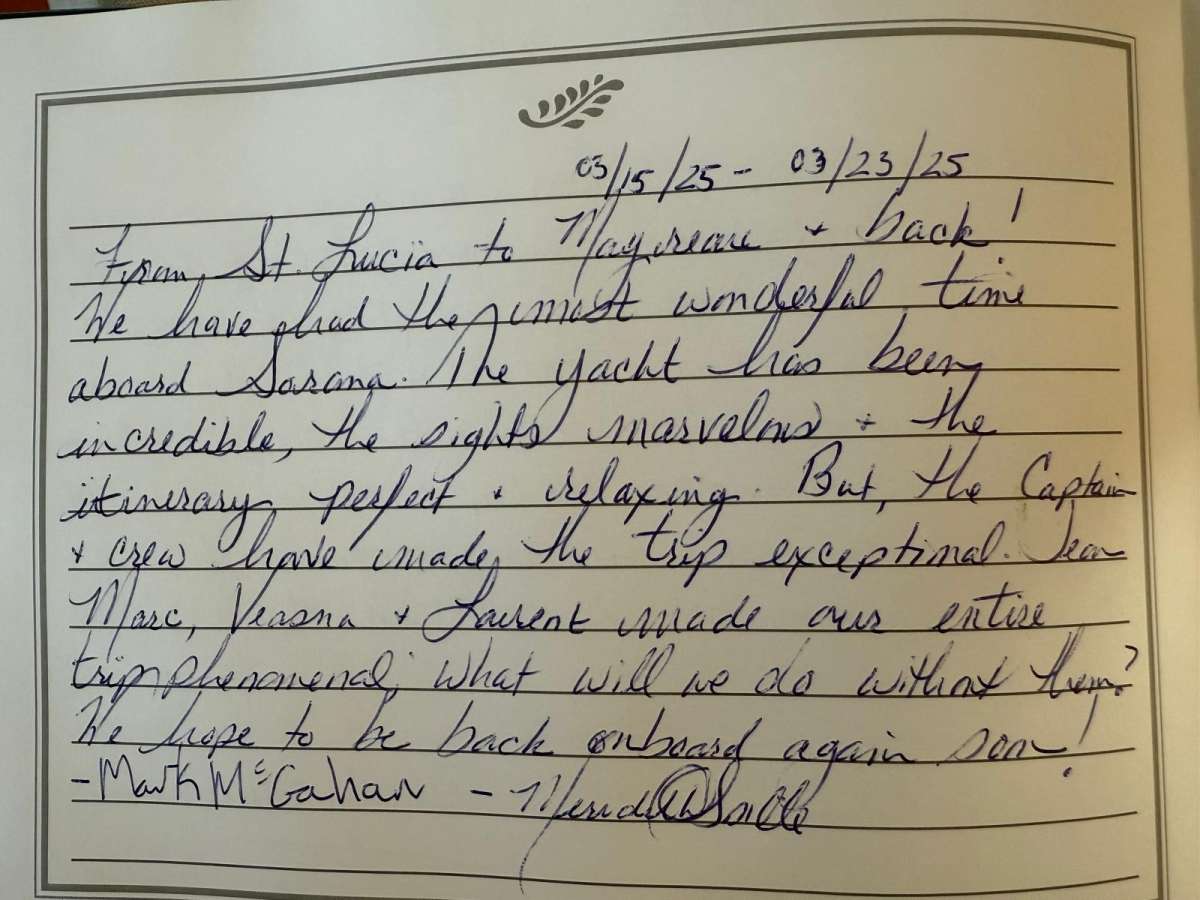 03/15/25 - 03/23/25
From St. Lucia to Mayreau + back!
We have had the most wonderful time
aboard Sarana. The yacht has been
incredible, the sights marvelous + the
itinerary perfect + relaxing. But, the Captain
+ crew have made the trip exceptional. Jean
Marc, Veasna + Laurent made our entire
trip phenomenal; what will we do without them?
We hope to be back onboard again soon!
- Mark McGahan -